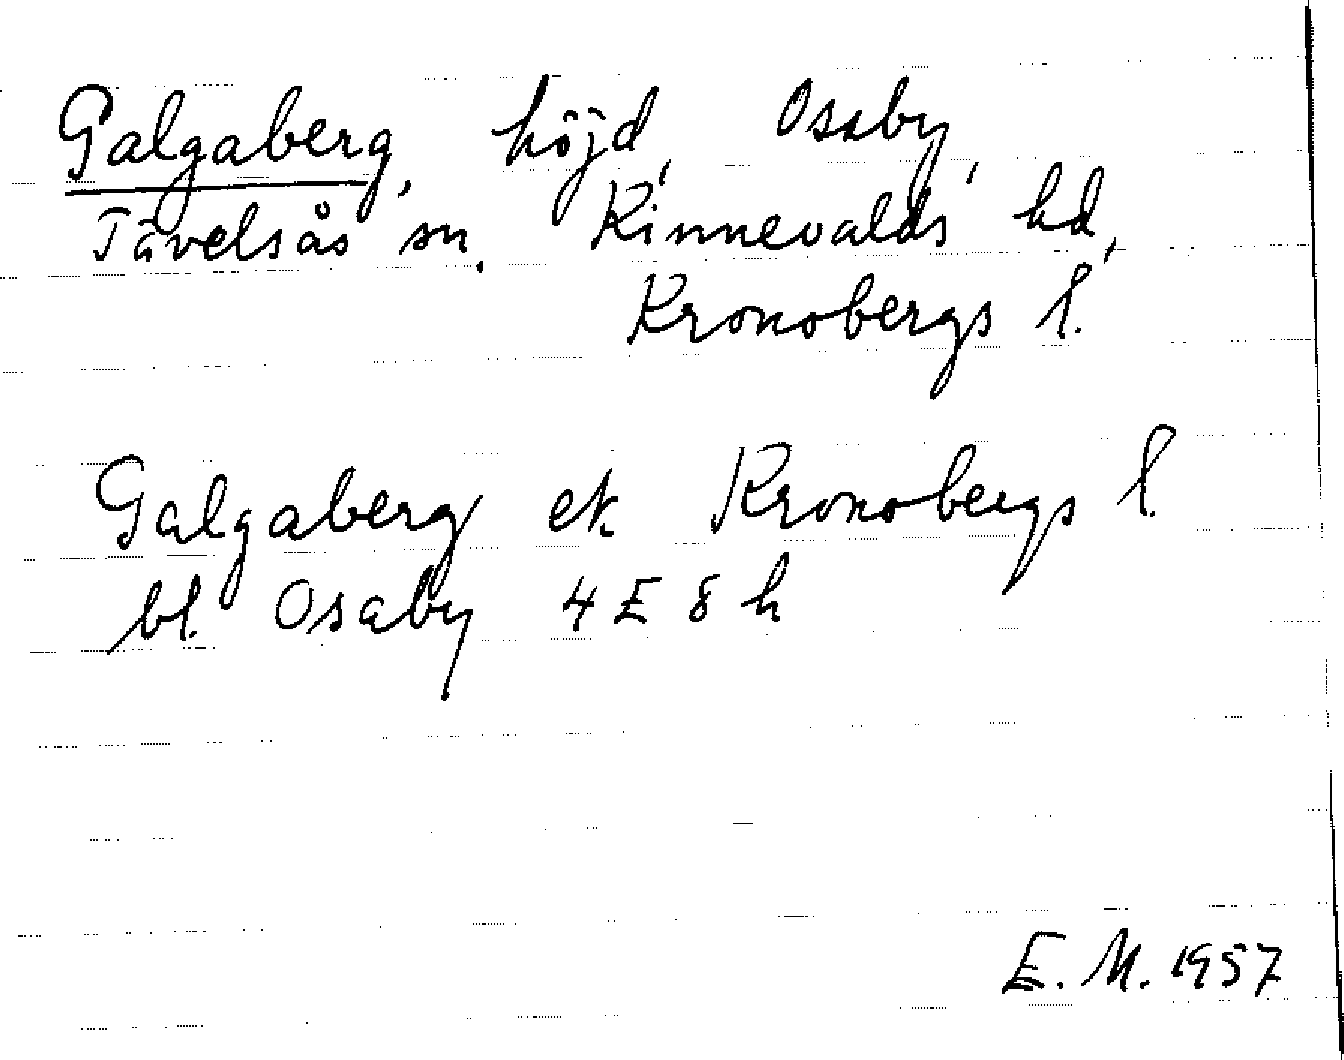 Galgaberg, höjd, Osaby,
Tävelsås sn. Kinnevalds hd,
Kronobergs l.
Galgaberg ek Kronobergs l.
bl. Osaby 4 E 8 h
E. M. 1957